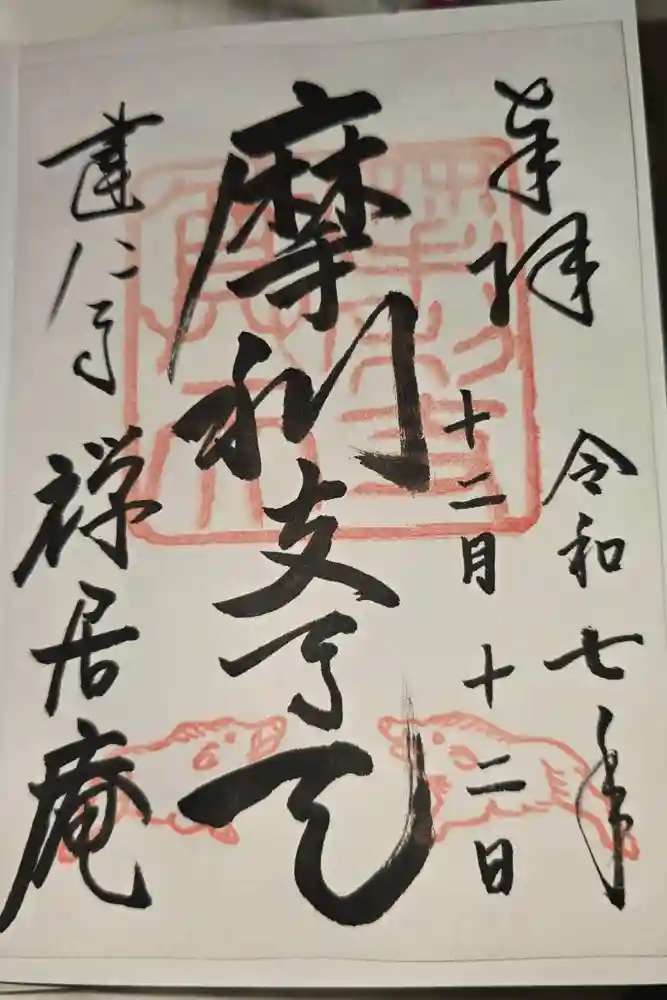 奉拝
令和七年
十二月十二日
摩利支尊天
建仁寺 禅居庵